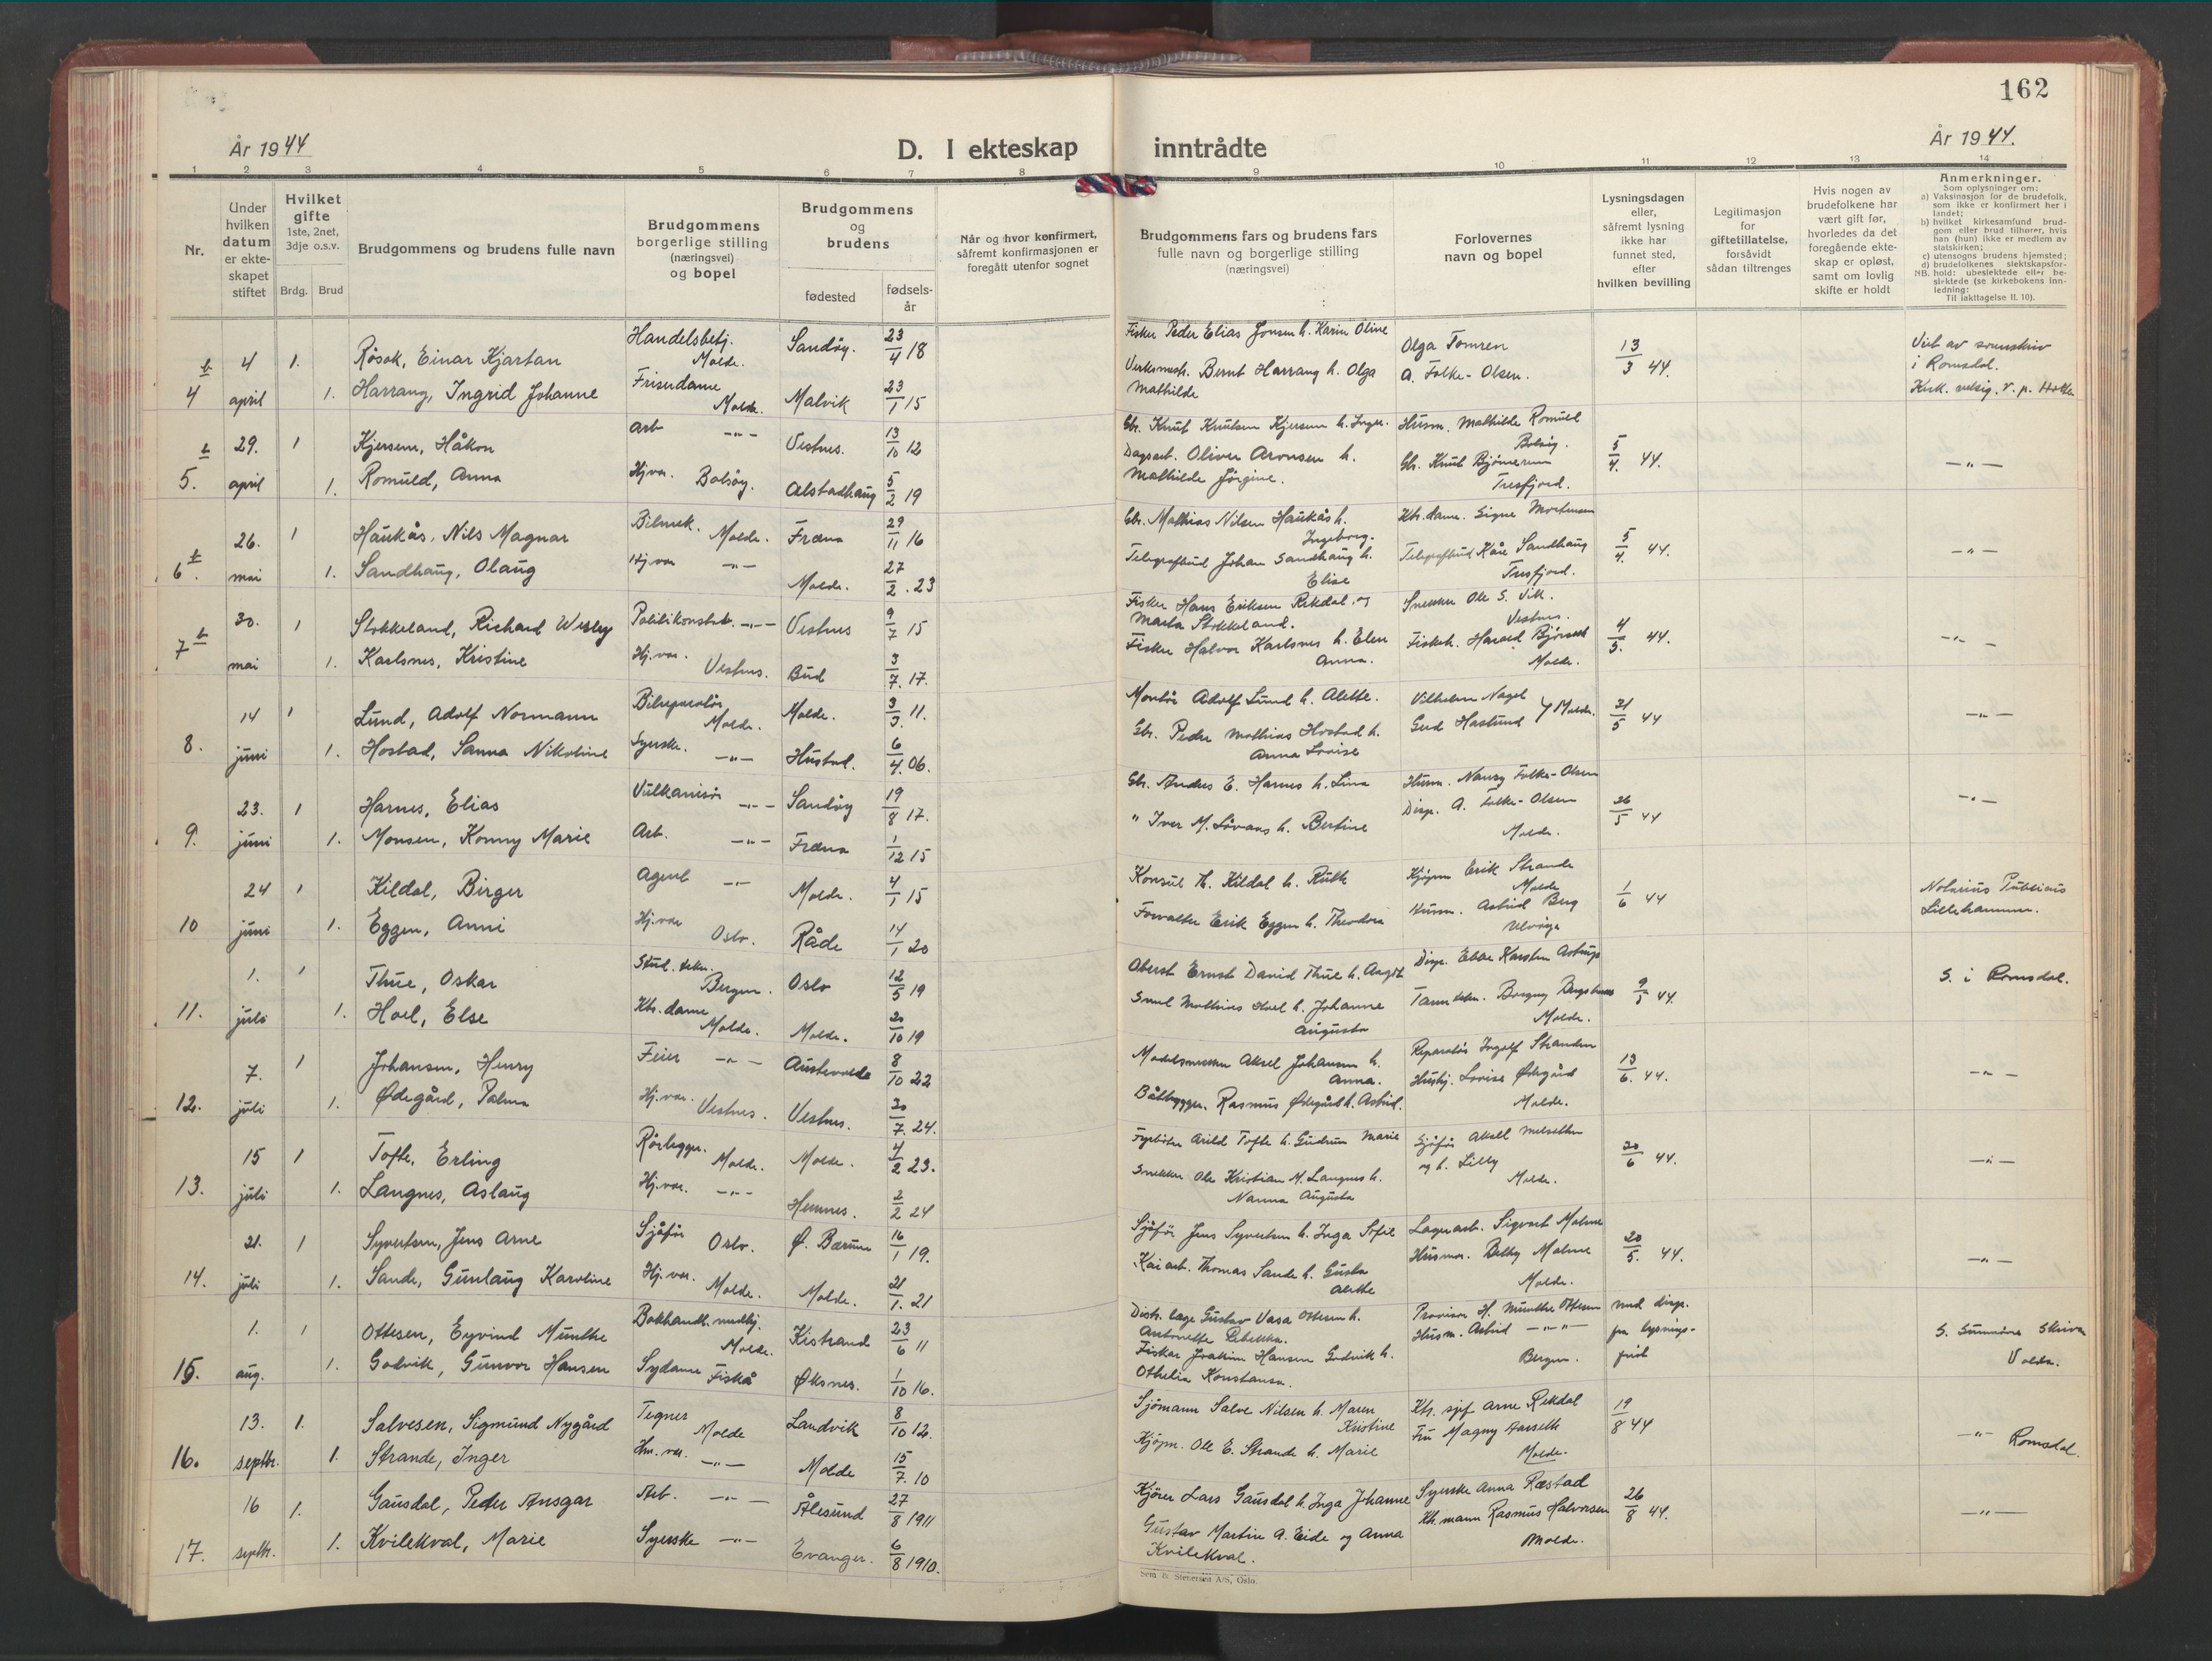 162
År 1944
D. I ekteskap inntrådte
År 1944.
1 2 3 4 5 6 7 8 9 10 11 12 13 14
Nr.
Under hvilken datum er ekteskapet stiftet
Hvilket gifte 1ste, 2net, 3dje o.s.v.
Brdg. Brud
Brudgommens og brudens fulle navn
Brudgommens borgerlige stilling (næringsvei) og bopel
Brudgommens og brudens
fødested
fødselsår
Når og hvor konfirmert, såfremt konfirmasjonen er foregått utenfor sognet
Brudgommens fars og brudens fars fulle navn og borgerlige stilling (næringsvei)
Forlovernes navn og bopel
Lysningsdagen eller, såfremt lysning ikke har funnet sted, efter hvilken bevilling
Legitimasjon for giftetillatelse, forsåvidt sådan tiltrenges
Hvis nogen av brudefolkene har vært gift før, hvorledes da det foregående ekteskap er opløst, samt om lovlig skifte er holdt
Anmerkninger.
Som oplysninger om:
a) Vaksinasjon for de brudefolk, som ikke er konfirmert her i landet;
b) hvilket kirkesamfund brudgom eller brud tilhører, hvis han (hun) ikke er medlem av statskirken;
c) utensogns brudens hjemsted;
d) brudefolkenes slektskapsforhold: ubeslektede eller beslektede (se kirkebokens innledning:
NB.
Til iakttagelse II. 10).
b 4 1. Røsok, Einar Kjartan Handelsbetj. Molde. Sandøy. 23/4 18 Fisker Peder Elias Jonsen h. Karin Oline Olga Tomren 13/3 44. i Romsdal.
4 april 1. Harrang, Ingrid Johanne Friserdame Molde. Malvik 23/1 15 Bernt Harrang h. Olga Mathilde A. Folke-Olsen.
b 29. 1 Kjersem, Håkon Arb —"— Vestnes. 13/10 12 Gbr. Knut Knutsen Kjersem h. Inger. Husm. Mathilde Romuld Bolsøy. 5/4. 44. —"—
5. april 1. Romuld, Anna Hj.vær. Bolsøy. Alstadhaug 5/2 19 Dagsarb. Oliver Aronsen h. Mathilde Jørgine. Gbr. Knut Bjørnerem Tresfjord.
26. 1 Haukås, Nils Magnar Bilmek. Molde. Fræna 29/11 16 Gbr. Mathias Nilsen Haukås h. Ingeborg. Ktr.dame. Signe Mortensen 5/4. 44. —"—
6 b. mai 1. Sandhaug, Olaug Hj.vær —"— Molde. 27/2. 23 Telegrafbud Johan Sandhaug h. Elise Telegrafbud Kåre Sandhaug Tresfjord.
30. 1 Stokkeland, Richard Wesley Politikonstab. —"— Vestnes 9/7 15 Fisker Hans Eriksen Rekdal og Marta Stokkeland. Snekker Ole S. Vik. Vestnes. 4/5. 44. —"—
7 b mai 1. Karlsnes, Kristine Hj.vær. Vestnes. Bud 3/7. 17. Fisker Halvor Karlsnes h. Elen Anna. Harald Bjørseth Molde.
14 1 Lund, Adolf Normann Bilreparatør Molde. Molde. 3/3. 11. Montør Adolf Lund h. Alette. Vilhelm Nagel 21/5 44 —"—
8. juni 1. Hostad, Sanna Nikoline Syerske. —"— Hustad. 6/4. 06. Gbr. Peder Mathias Hostad h. Anna Lovise Gerd Haslund } Molde.
23. 1 Harnes, Elias Vulkanisør —"— Sandøy 19/8 17. Gbr. Andres E. Harnes h. Lina Husm. Nancy Folke-Olsen 26/5 44 —"—
9. juni 1. Monsen, Konny Marie Arb. —"— Fræna 1/12 15 " Iver M. h. Bertine Disp. A. Folke-Olsen Molde.
24 1 Kildal, Birger Agent —"— Molde. 4/1 15 Konsul Th. Kildal h. Ruth Kjøpm Erik Strande Molde 1/6 44 Notarius Publicus Lillehammer.
10 juni 1. Eggen, Anni Hj.vær Oslo. Råde 14/1 20 Forvalter Erik Eggen h. Theodora Husm. Astrid Berg
1. 1 Thue, Oskar Stud. tekn. Bergen. Oslo 12/5 19 Oberst Ernst David Thue h. Disp. Ebbe Karsten Astrup 9/5 44. S. i Romsdal.
11. juli 1. Hoel, Else Ktr. dame Molde. Molde. 20/10 19 Mathias Hoel h. Johanne Augusta Tanntekn. Borgny Molde.
7. 1 Johansen, Henry Feier —"— 8/10 22 Modelsnekker Aksel Johansen h. Anna. Reparatør Ingolf Stranden 13/6. 44. —"—
12. juli 1. Ødegård, Palma Hj.vær. Vestnes. Vestnes. 20/7. 24. Båtbygger Rasmus Ødegård h. Astrid. Hushj. Lovise Ødegård Molde.
15 1 Tofte, Erling Rørlegger. Molde. Molde. 4/2 23. Fyrbøter Arild Tofte h. Gudrun Marie Sjåfør Aksel Melsether og h. Lilly Molde. 20/6 44. —"—
13. juli 1. Langnes, Aslaug Hj.vær. —"— Hemnes. 2/2 24 Snekker Ole Kristian M. Langnes h. Nanna Augusta
21. 1 Syvertsen, Jens Arne Sjåfør Oslo. Ø. Bærum 16/1 19. Sjåfør Jens Syvertsen h. Inga Sofie Lagerarb. Sigvart Malme 20/5. 44. —"—
14. juli 1. Sande, Gunlaug Karoline Hj.vær. Molde. Molde. 21/1. 21 Kaiarb. Thomas Sande h. Gusta Alette Husmor. Betzy Malme Molde.
1. 1 Ottesen, Eyvind Munthe Bokhandl.medhj. Molde. Kistrand 23/6 11 Distr. læge Gustav Vasa Ottesen h. Antonette Rebekka. Provisor H. Munthe Ottesen med disp. fra lysnings-frist S. Sunnmøre Skriver Volda.
15. aug. 1. Godvik, Gunvor Hansen Sydame Fiskå Øksnes. 1/10 16. Fisker Joakim Hansen Godvik h. Othelia Konstanse. Husm. Astrid —"— Bergen.
13. 1. Salvesen, Sigmund Nygård Tegner Molde Landvik 8/10 12. Sjømann Salve Nilsen h. Maren Kristine Ktr. sjef Arne Rekdal 19/8 44 —"— Romsdal.
16. septbr. 1. Strande, Inger —"— Molde 15/7. 10 Kjøpm. Ole E. Strande h. Marie Fru Magny Aarseth Molde.
16 1. Gausdal, Peder Ansgar Arb. —"— Ålesund 27/8 1911 Kjører Lars Gausdal h. Inga Johanne Syerske Anna Ræstad 26/8 44. —"—
17. septbr. 1. Kvilekval, Marie Syerske —"— Evanger. 6/8 1910. Gustav Martin A. Eide og Anna Kvilekval. Kth. mann Rasmus Halvorsen Molde.
Sem & Stenersen A/S, Oslo.